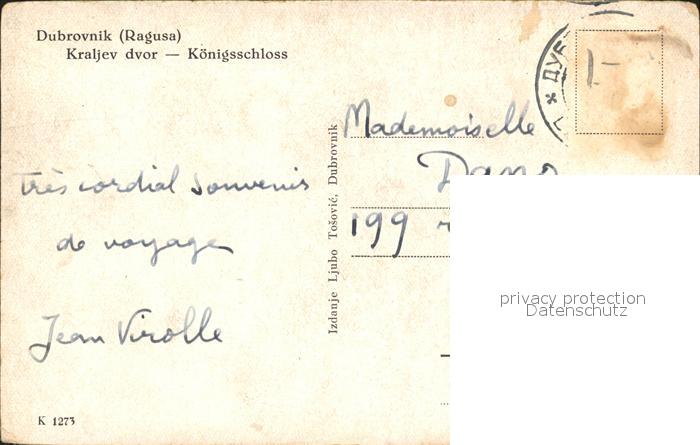 Dubrovnik (Ragusa)
Kraljev dvor — Königsschloss
très cordial souvenir
de voyage
Jean Virolle
K 1273
Izdanje Ljubo Tošović, Dubrovnik
Mademoiselle
199
ДУБ
1-
privacy protection
Datenschutz